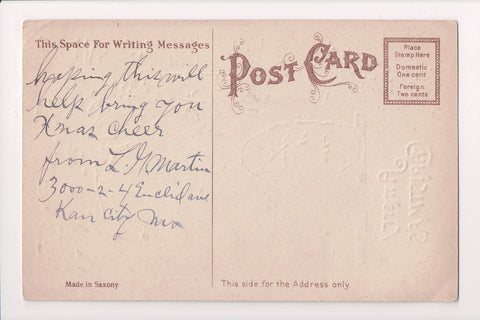 This Space For Writing Messages
POST CARD
Place
Stamp Here
Domestic
One cent
Foreign
Two cents
hopeing this will
help bring you
Xmas cheer
from L. G Martin
3000-2-4 Euclid ave
Kan city Mo
Made in Saxony
This side for the Address only.